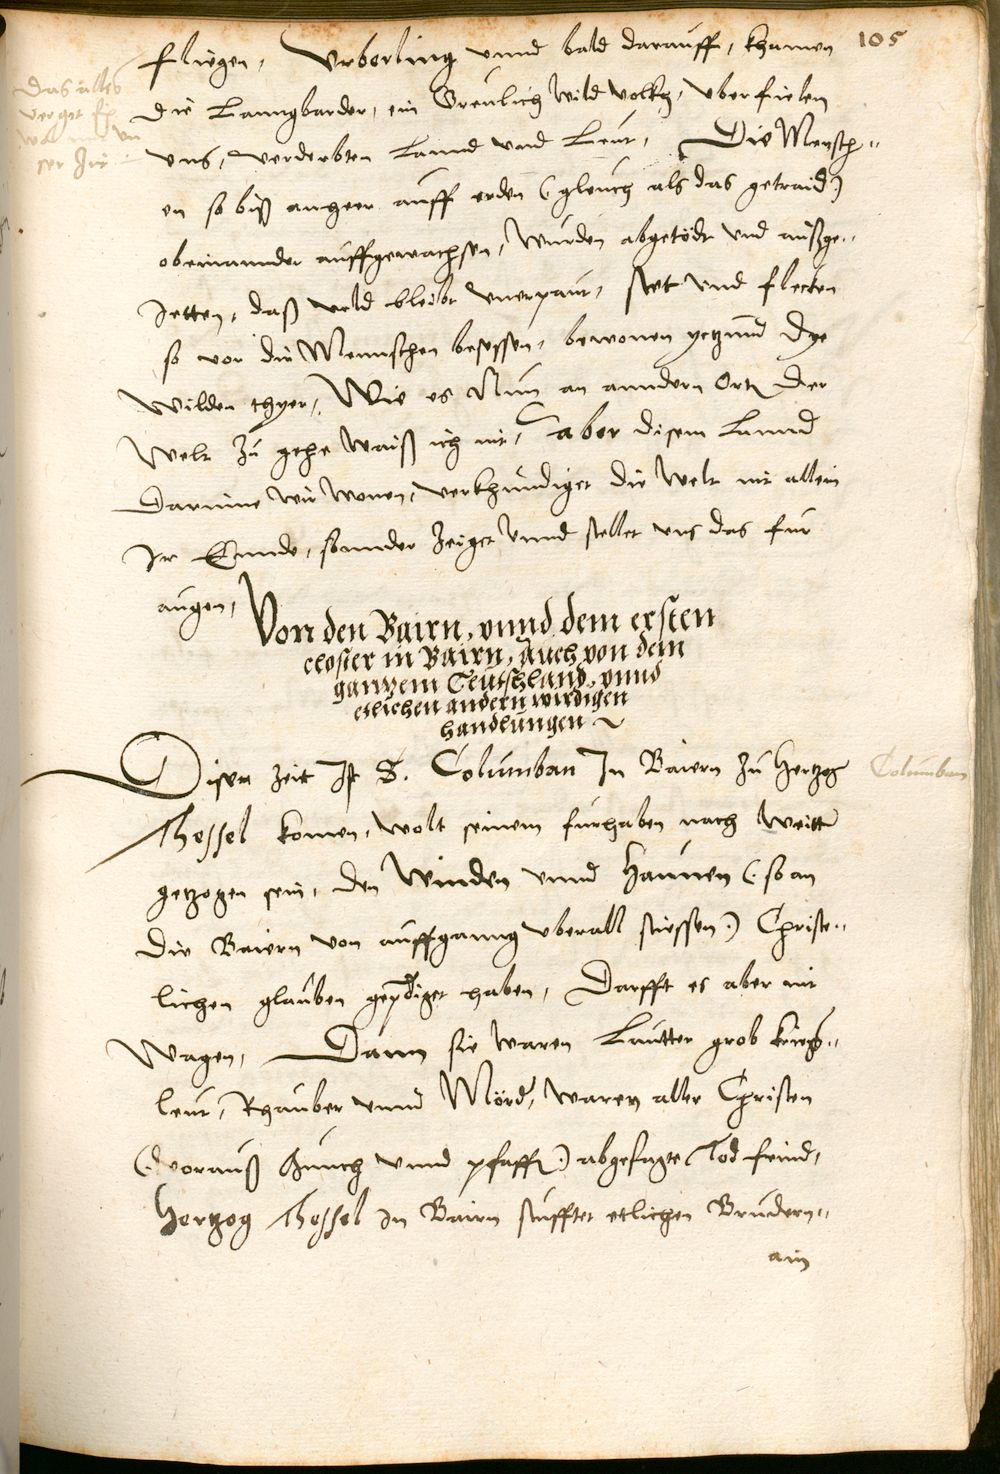 105
fliegen, Urboling unnd bald darauff, khamen
die Lanngbarder, ein Greulich wild volckh, uberfielen
uns, verderbten Lannd und Leut, Die Mensch-
en so biß anheer auff erden (: gleich als das getraid :)
obeinannder auffgewachsen, wurden abgetödt und außge-
Jetten, daß veld bleibt unerpaut, Stet und flecken
so vor die Mennschen besessen, bewonen yetzund dye
wilden thyer, Wie es Nun an anndern Ortn der
welt zu gehe waiß ich nit, aber disem Lannd
Darinne wir wonen, verkhündiget die welt nit allein
Ir Ennde, sonnder Zeiget unnd stellet uns das fur
augen,
Das alles
verget
ser Zeit
Von den Bairn, unnd dem ersten
closter in Bairn, Auch von dem
gantzem Teutschland, unnd
etlichen andern wirdigen
handlungen
Diser zeit Ist S. Columban In Baiern zu Hertzog
Thessel komen, wolt seinem furhaben nach weitter
getzogen sein, den Winden unnd Haunen (: so an
die Baiern von auffganng uberall stiessen :) Christe-
lichen glauben geprediget haben, Dorfft es aber nit
wagen, Dann sie waren Lautter grob kriegs-
leut, Rhauber unnd Mörder, waren aller Christen
(: vorauß Münch unnd pfaffen :) abgesagte Tod feind,
Hertzog Thessel in Bairn stifftet etlichen Brudern
ain
Columban